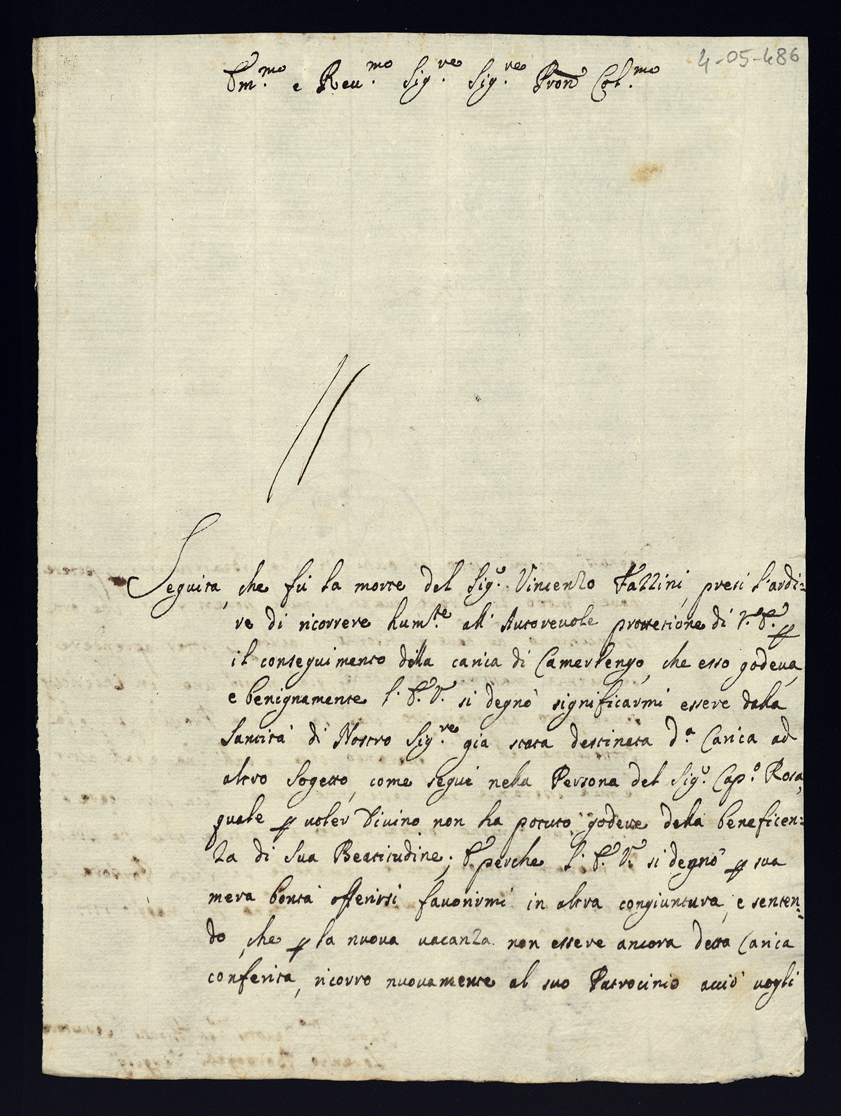 4-05-486
Em.mo e Reu.mo Sig.re Sig.re Pron Col.mo
Seguita, che fù la morte del Sig.r Vincenzo Fazzini, presi l'ardi-
re di ricorrere hum.te all'Autoreuole protetione di V. E. p
il conseguimento della carica di Camerlengo, che esso godeua,
e benignamente l'E. V. si degnò significarmi essere dalla
Santità di Nostro Sig.re già stata destinata d.a Carica ad
altro Sogetto, come seguì nella Persona del Sig.r Cap.o Rosa,
quale p uoler Diuino non ha potuto godere della beneficen-
za di Sua Beatitudine; E perche l'E. V. si degnò p sua
mera bontà offerirsi fauorirmi in altra congiuntura, e senten-
do, che p la nuoua uacanza non essere ancora detta Carica
conferita, ricorro nuouamente al suo Patrocinio acciò uogli